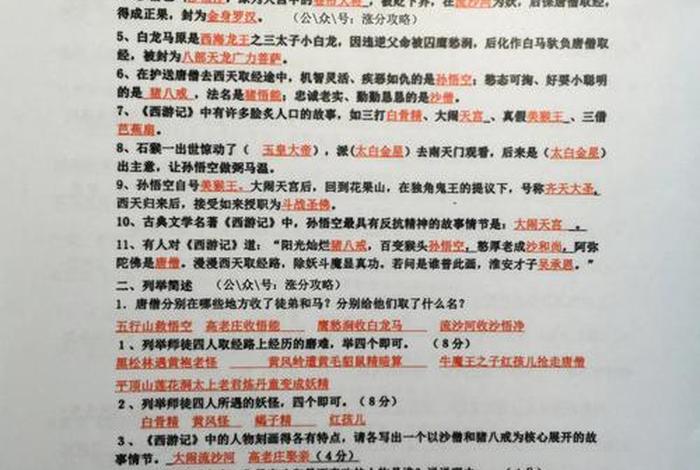 得成正果，封为金身罗汉。（公\众\号：涨分攻略）
5、白龙马原是西海龙王之三太子小白龙，因违逆父命被囚鹰愁涧，后化作白马驮负唐僧取
经，被封为八部天龙广力菩萨。
6、在护送唐僧去西天取经途中，机智灵活、疾恶如仇的是孙悟空；憨态可掬、好耍小聪明
的是 猪八戒 ，法名是猪悟能；忠诚老实、勤勤恳恳的是沙僧。
7、《西游记》中有许多脍炙人口的故事，如三打白骨精、大闹天宫 、真假美猴王 、三借
芭蕉扇。
8、石猴一出世惊动了（ 玉皇大帝），派(太白金星）去南天门观看，后来是（太白金星）
出主意，让孙悟空做弼马温。
9、孙悟空自号美猴王，大闹天宫后，回到花果山，在独角鬼王的提议下，号称齐天大圣，
西天归来后，接受如来授职为斗战圣佛。
10、古典文学名著《西游记》中，孙悟空最具有反抗精神的故事情节是：大闹天宫 。
11、有人对《西游记》道：“阳光灿烂猪八戒，百变猴头孙悟空，憨厚老成沙和尚，阿弥
陀佛是唐僧。漫漫西天取经路，除妖斗魔显真功。若问是谁普此画，淮安才子吴承恩。”
二、列举简述 （公\众\号：涨分攻略）
1．唐僧分别在哪些地方收了徒弟和马？分别给他们取了什么名？
五行山救悟空 高老庄收悟能 鹰愁涧收白龙马 流沙河收沙悟净
1、列举师徒四人取经路上经历的磨难，举四个即可。（8分）
黑松林遇黄袍老怪 黄风岭遭黄毛貂鼠精暗算 牛魔王之子红孩儿抢走唐僧
平顶山莲花洞太上老君炼丹童变成妖精
2、列举师徒四人所遇的妖怪，四个即可。（8分）
白骨精 黄风怪 蝎子精 红孩儿
3、《西游记》中的人物刻画得各有特点，请各写出一个以沙僧和猪八戒为核心展开的故
事情节。 大闹流沙河 高老庄娶亲（4分）